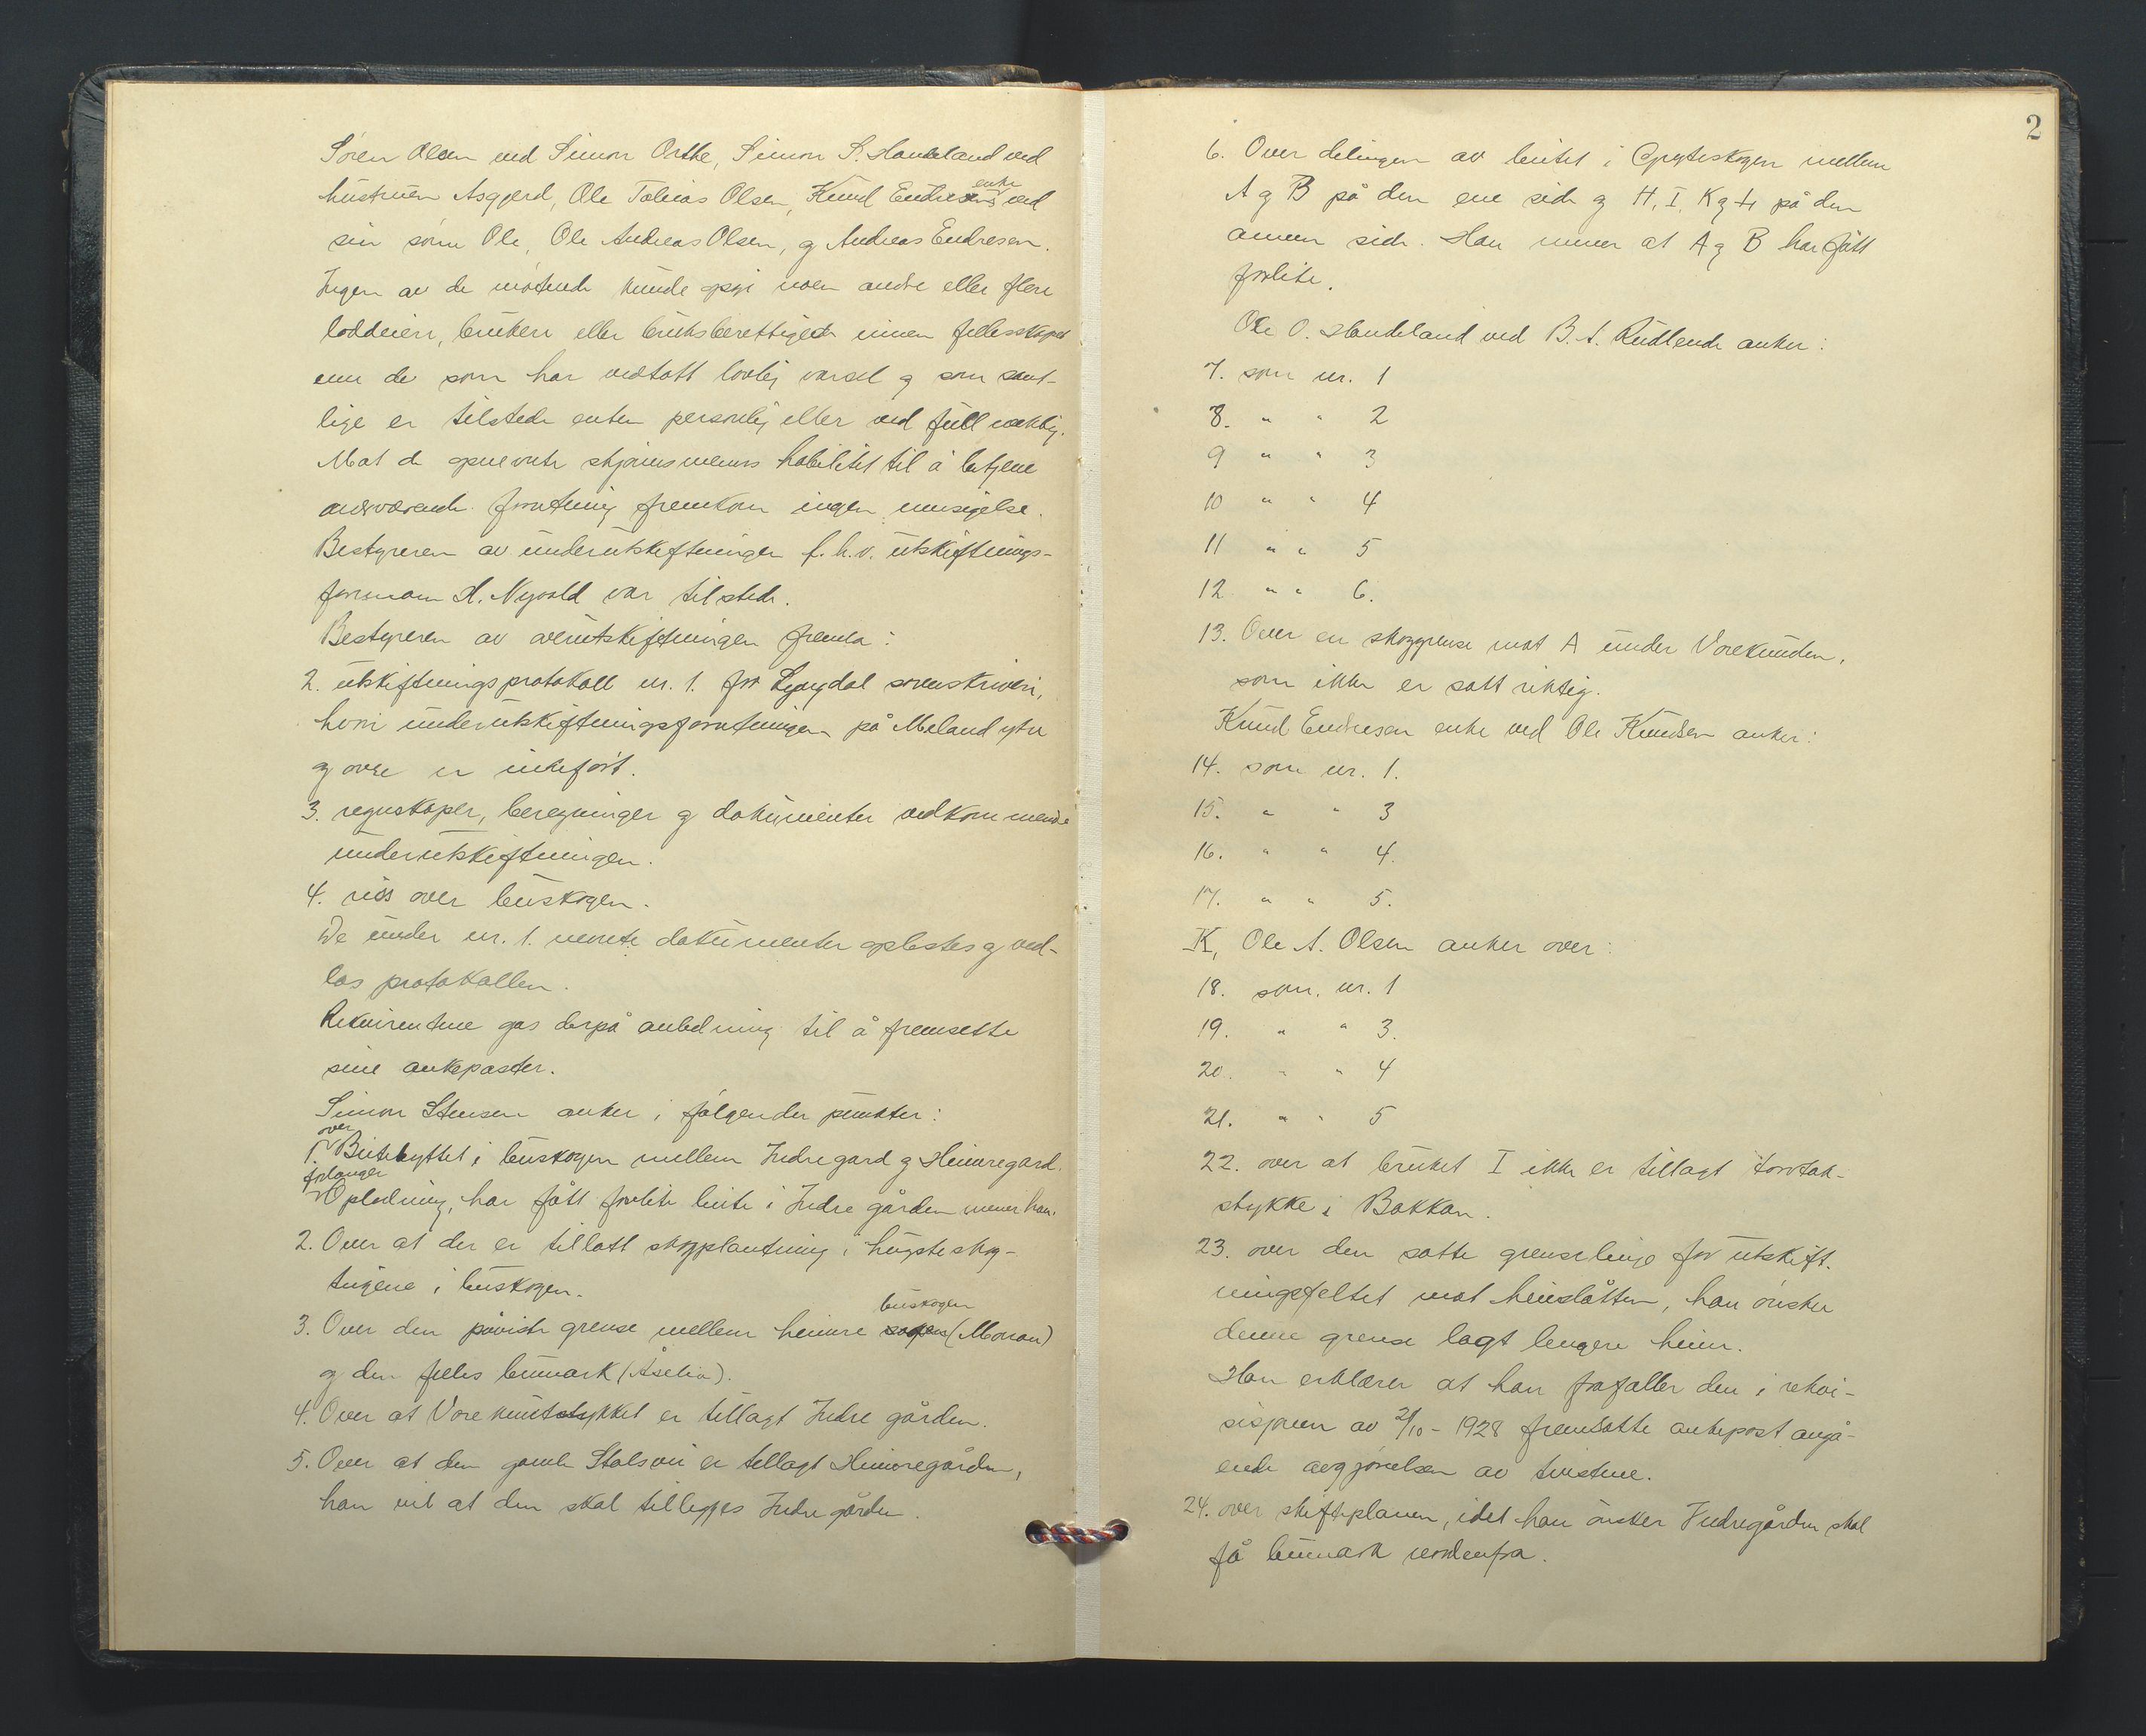 Søren Olsen ved Simon Osthe, Simon S. Haudeland ved
hustruen Asgjerd, Ole Tobias Olsen, Knud Endresens enke ved
sin sønn Ole, Ole Andreas Olsen, og Andreas Endresen.
Ingen av de møtende kunde opgi noen andre eller flere
loddeiere, brukere eller bruksberettigede innen fellesskapet
enn de som har vedtatt lovlig varsel og som samt-
lige er tilstede enten personlig eller ved fullmektig.
Mot de opnevnte skjønsmenns habilitet til å betjene
nærværende forretning fremkom ingen innsigelse.
Bestyreren av underutskiftningen f.h.v. utskiftnings-
formann H. Nyvold var tilstede.
Bestyreren av overutskiftningen fremla:
2. utskiftningsprotokoll nr. 1. for Lyngdal sorenskriveri,
hvori underutskiftningsforretningen på Meland ytre
og øvre er innført.
3. regnskaper, beregninger og dokumenter vedkommende
underutskiftningen.
4. riss over buskogen.
De under nr. 1. nevnte dokumenter oplestes og ved-
las protokollen.
Rekvirentene gas derpå anledning til å fremsette
sine ankeposter.
Simon Stensen anker i følgender punkter:
1. over Butebyttet i buskogen mellem Indregard og Heimregard.
forlanger Oplodning, har fått forlite beite i Indre gården mener han.
2. Over at der er tillatt skogplantning i høgste skog-
teigene i buskogen.
3. Over den påviste grense mellem heimre buskogen (Monan)
og den felles bumark (Åselia).
4. Over at Vorekuntstykket er tillagt Indre gården.
5. Over at den gamle Stølsvei er tillagt Heimregården,
han vil at den skal tillegges Indre gården.
2
6. Over delingen av beitet i mellem
A og B på den ene side og H, I, K og L på den
annen side. Han mener at A og B har fått
forlite.
Ole O. Haudeland ved B. A. Rudlende anker:
7. som nr. 1
8. " " 2
9 " " 3
10 " " 4
11 " " 5
12 " " 6.
13. Over en skoggrense mot A under Vorekunden,
som ikke er satt riktig.
Knud Endresen enke ved Ole Knudsen anker:
14. som nr. 1.
15. " " 3
16. " " 4.
17. " " 5.
K, Ole A. Olsen anker over:
18. som nr. 1
19. " " 3.
20. " " 4
21. " " 5
22. over at bruket I ikke er tillagt torvtak-
stykke i Bakkan.
23. over den satte grenselinje for utskift-
ningsfeltet mot heieslåtten, han ønsker
denne grense lagt lengere heim.
Han erklærer at han frafaller den i rekvi-
sisjonen av 21/10 - 1928 fremsatte ankepost angå-
ende avgjørelsen av tvistene.
24. over skifteplanen, idet han ønsker Indregården skal
få bumark nordenfra.